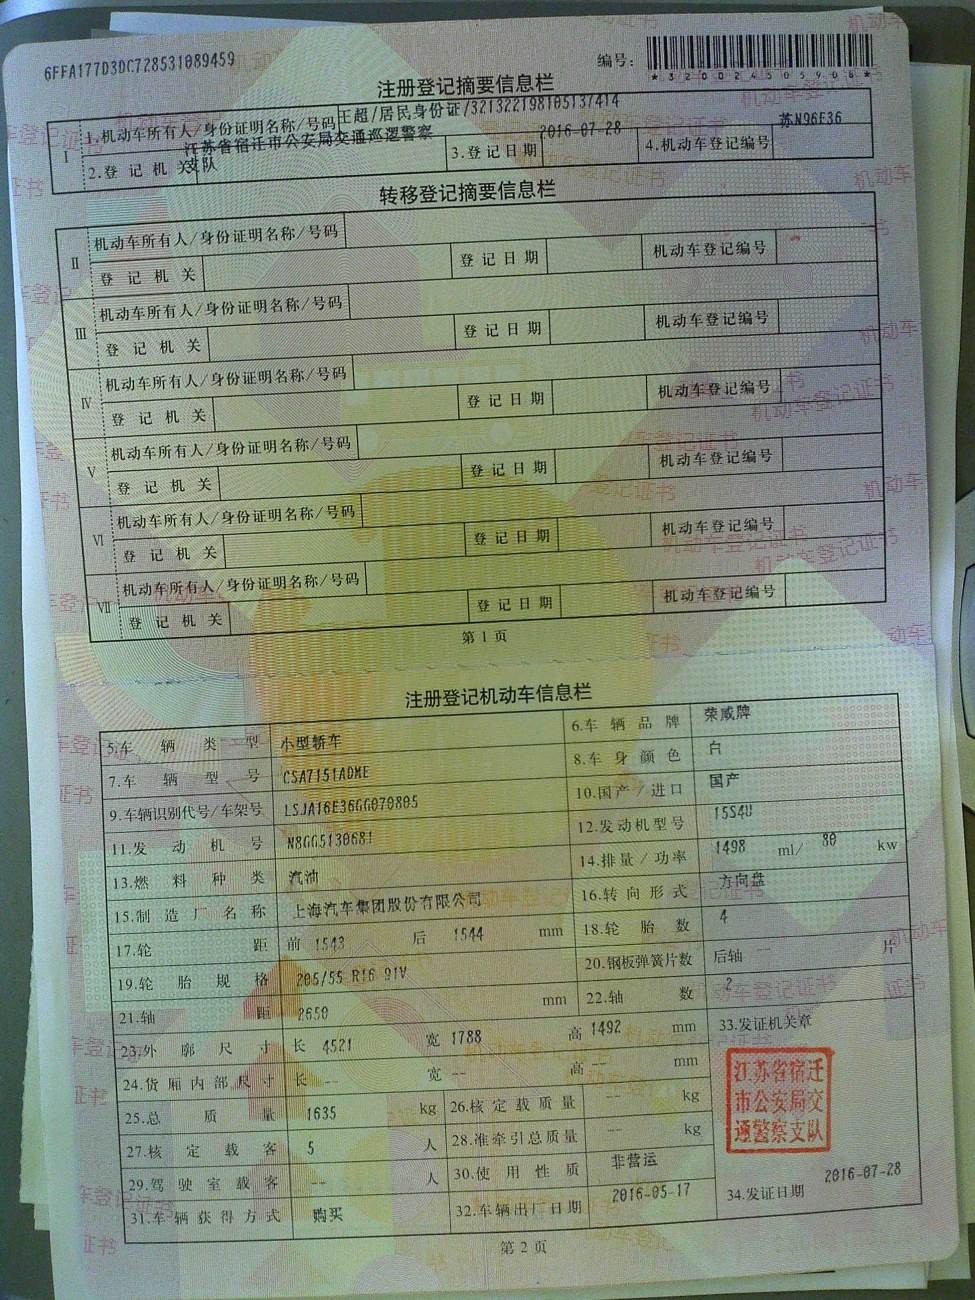 6FFA177D3DC728531089459
编号：
*320024505908*
注册登记摘要信息栏
I 1.机动车所有人/身份证明名称/号码 王超/居民身份证/321322198105137414
2.登记机关 江苏省宿迁市公安局交通巡逻警察支队 3.登记日期 2016-07-28 4.机动车登记编号 苏N96E36
转移登记摘要信息栏
II 机动车所有人/身份证明名称/号码
登记机关 登记日期 机动车登记编号
III 机动车所有人/身份证明名称/号码
登记机关 登记日期 机动车登记编号
IV 机动车所有人/身份证明名称/号码
登记机关 登记日期 机动车登记编号
V 机动车所有人/身份证明名称/号码
登记机关 登记日期 机动车登记编号
VI 机动车所有人/身份证明名称/号码
登记机关 登记日期 机动车登记编号
VII 机动车所有人/身份证明名称/号码
登记机关 登记日期 机动车登记编号
第1页
注册登记机动车信息栏
5.车辆类型 小型轿车 6.车辆品牌 荣威牌
7.车辆型号 CSA7151ADME 8.车身颜色 白
9.车辆识别代号/车架号 LSJA16E36GG070805 10.国产/进口 国产
11.发动机号 N8GG5130681 12.发动机型号 15S4U
13.燃料种类 汽油 14.排量/功率 1498 ml/ 80 kw
15.制造厂名称 上海汽车集团股份有限公司 16.转向形式 方向盘
17.轮距 前 1543 后 1544 mm 18.轮胎数 4
19.轮胎规格 205/55 R16 91V 20.钢板弹簧片数 后轴 片
21.轴距 2650 mm 22.轴数 2
23.外廓尺寸 长 4521 宽 1788 高 1492 mm 33.发证机关章
24.货厢内部尺寸 长 -- 宽 -- 高 -- mm
江苏省宿迁
市公安局交
通警察支队
25.总质量 1635 kg 26.核定载质量 -- kg
27.核定载客 5 人 28.准牵引总质量 -- kg
29.驾驶室载客 -- 人 30.使用性质 非营运
31.车辆获得方式 购买 32.车辆出厂日期 2016-05-17 34.发证日期 2016-07-28
第2页